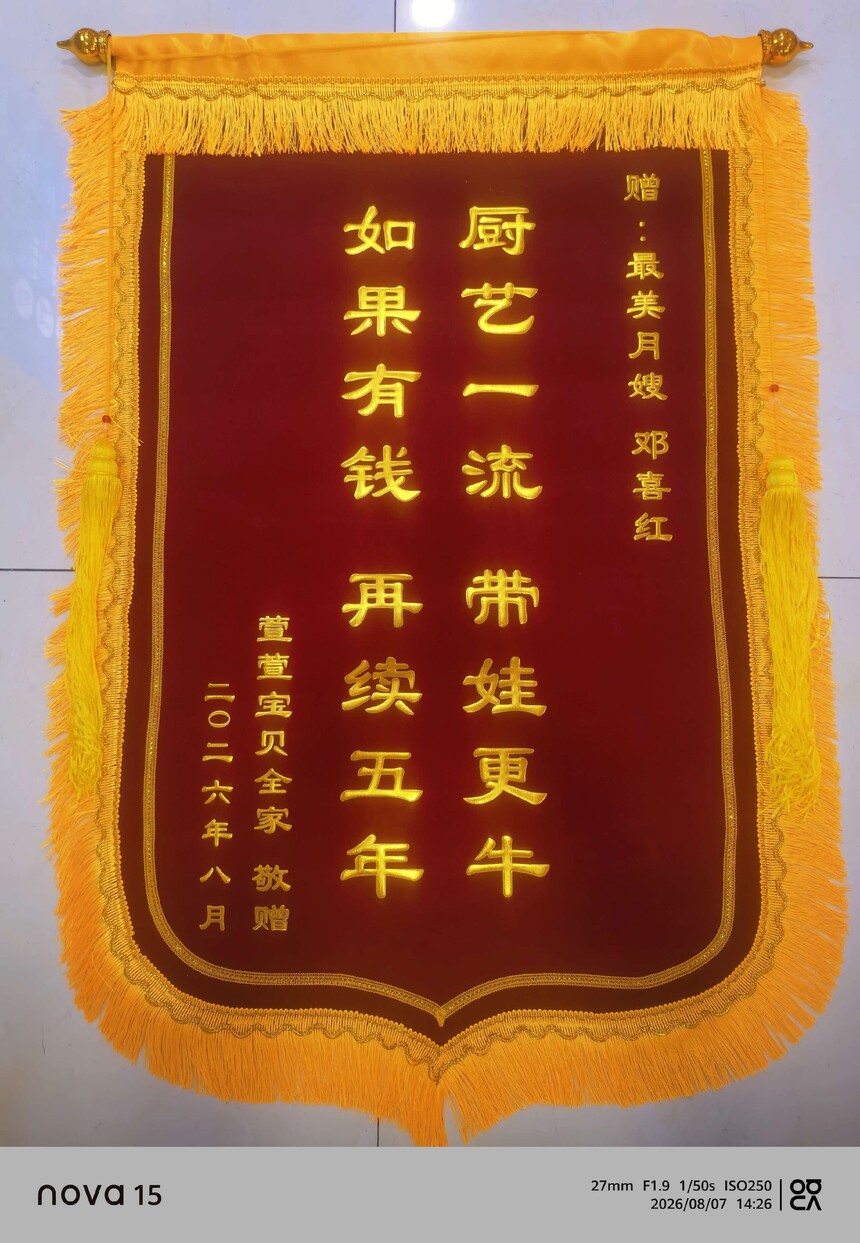 赠：最美月嫂 邓喜红
厨艺一流 带娃更牛
如果有钱 再续五年
萱萱宝贝全家 敬赠
二〇二六年八月
nova 15
27mm F1.9 1/50s ISO250
2026/08/07 14:26